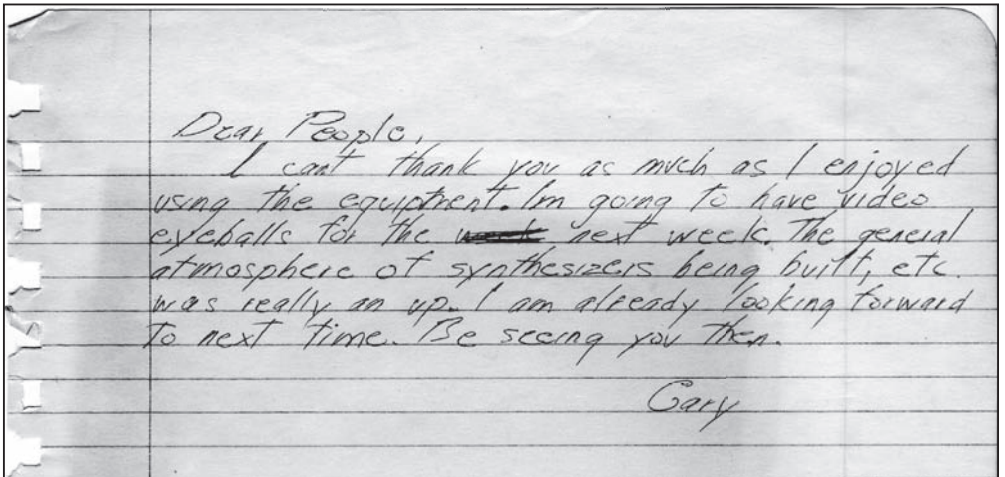 Dear People,
I cant thank you as much as I enjoyed
using the equiptment. Im going to have video
eyeballs for the next week. The general
atmosphere of synthesizers being built, etc.
was really an up. I am already looking forward
to next time. Be seeing you then.
Gary